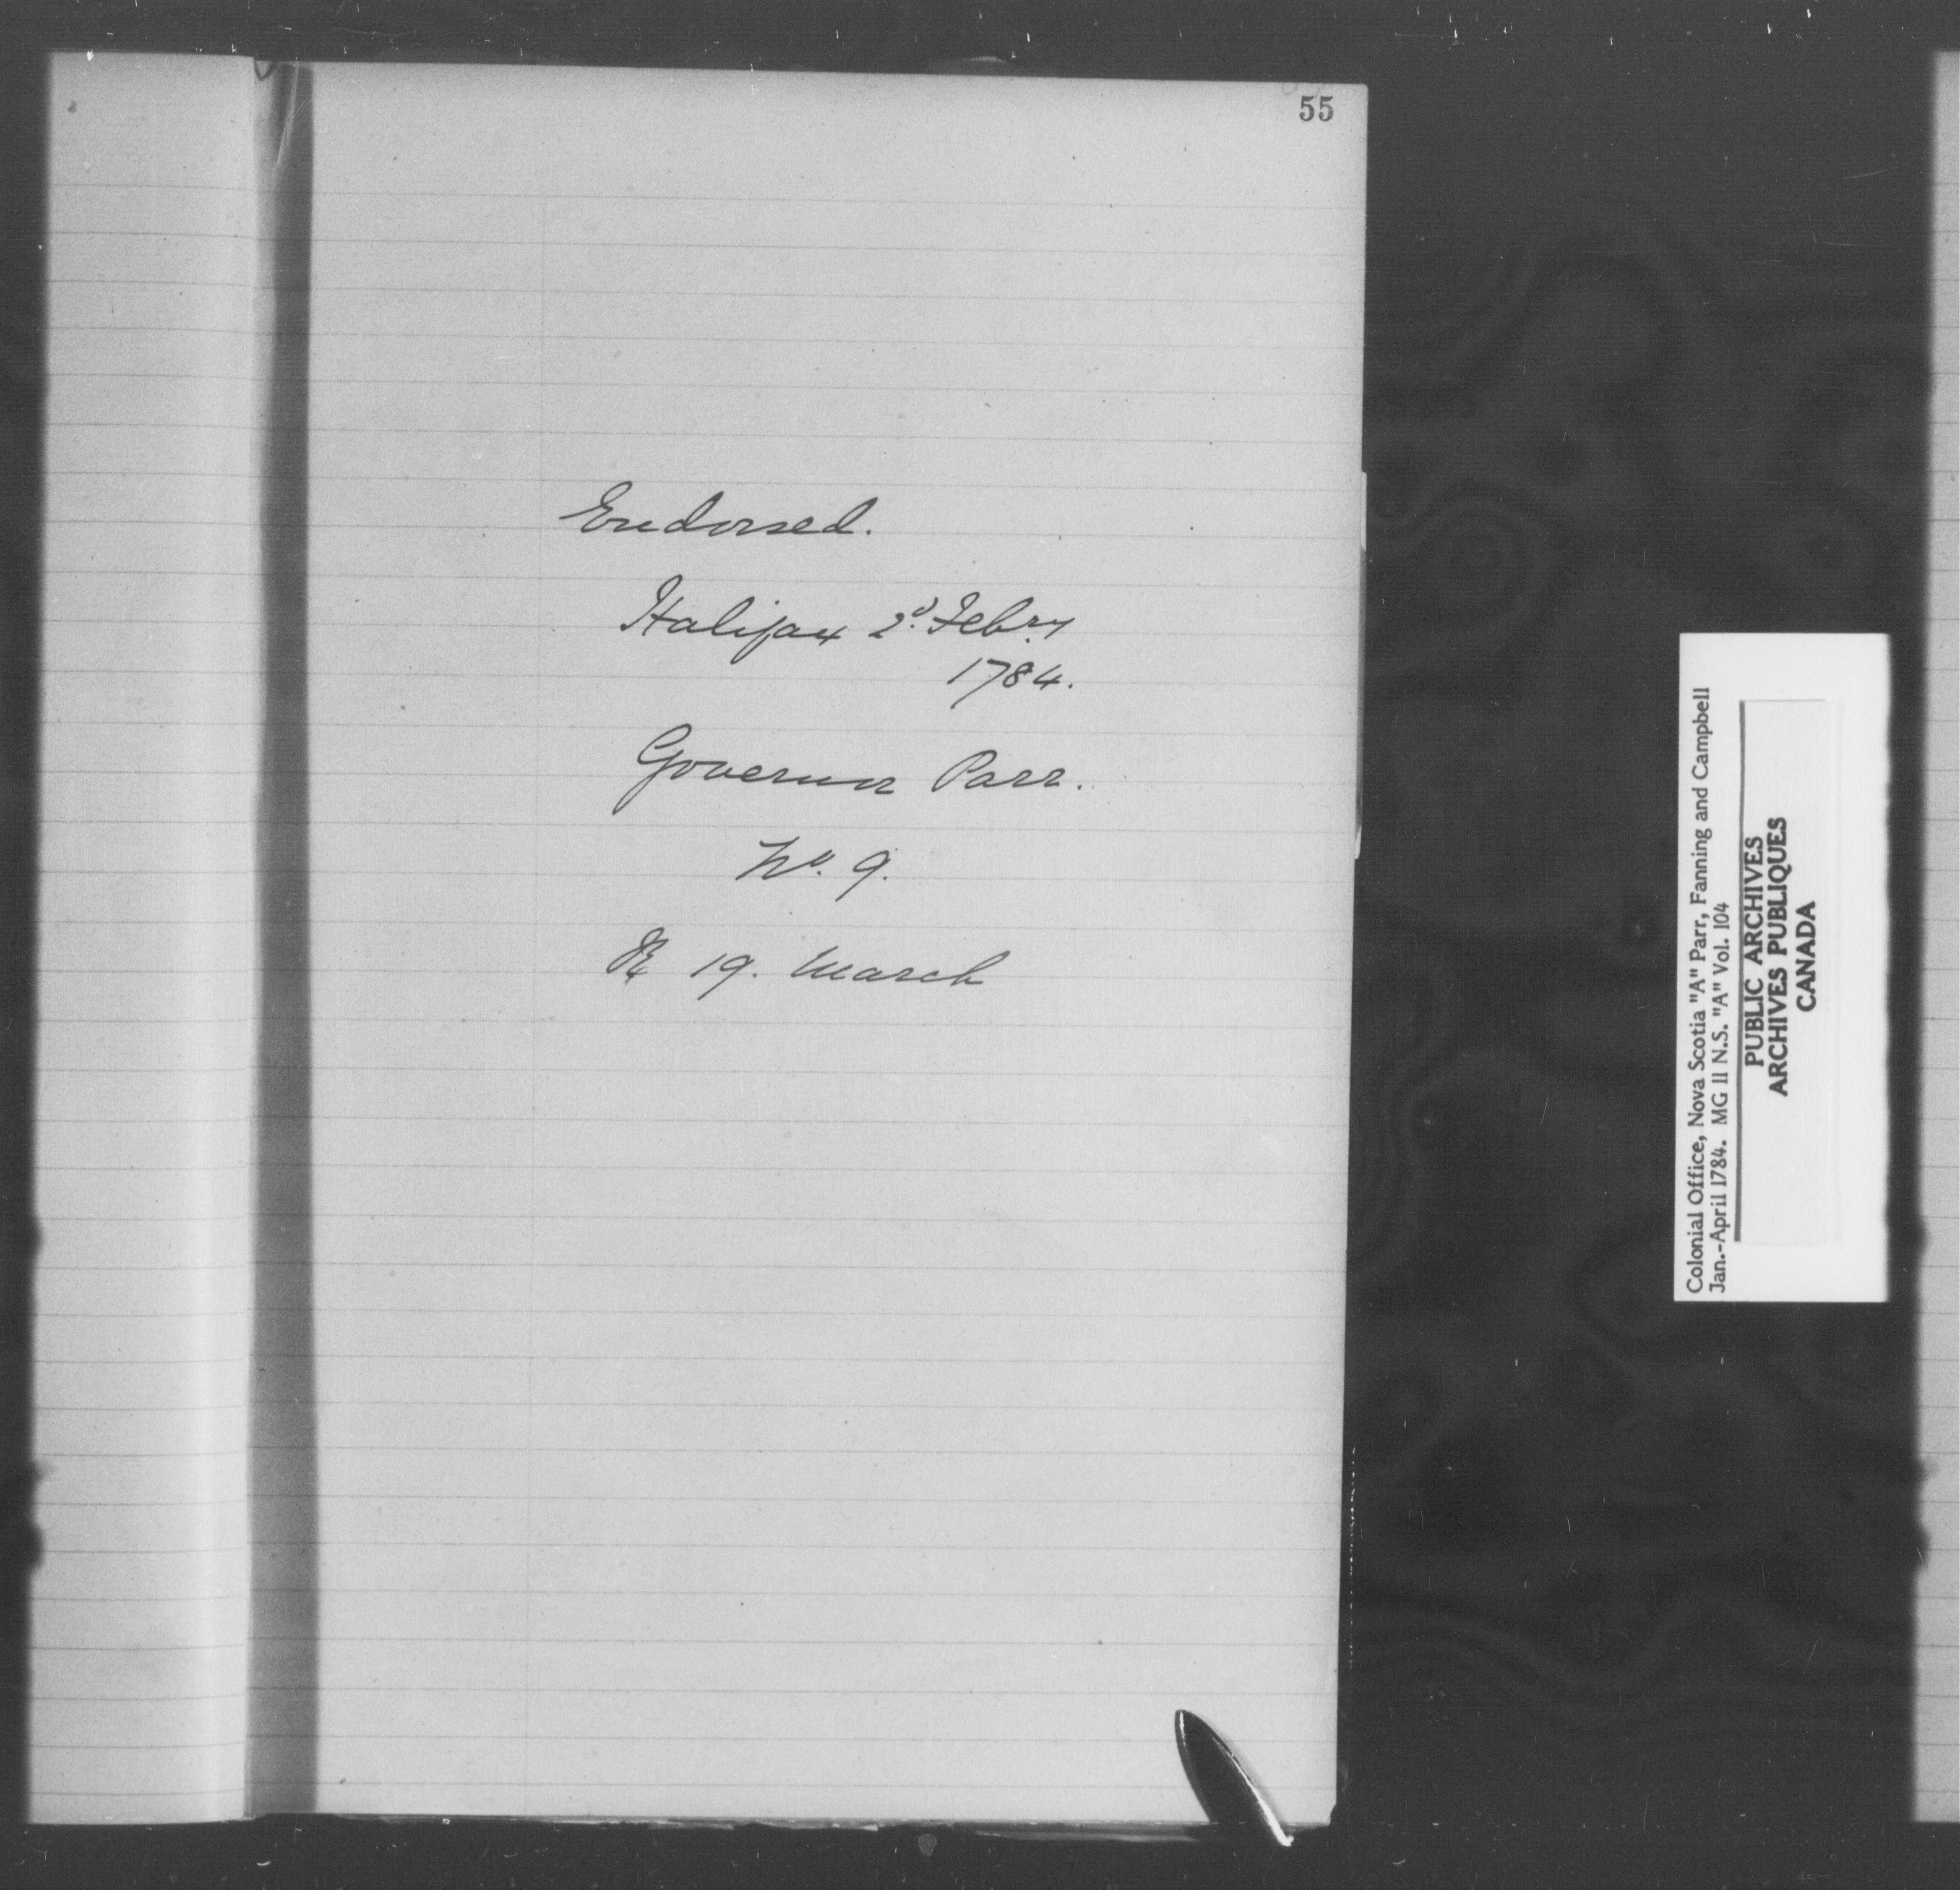 55
Endorsed.
Halifax 2d. Febry
1784.
Governor Parr.
No. 9.
R 19. March
Colonial Office, Nova Scotia "A" Parr, Fanning and Campbell
Jan.-April 1784. MG 11 N.S. "A" Vol. 104
PUBLIC ARCHIVES
ARCHIVES PUBLIQUES
CANADA